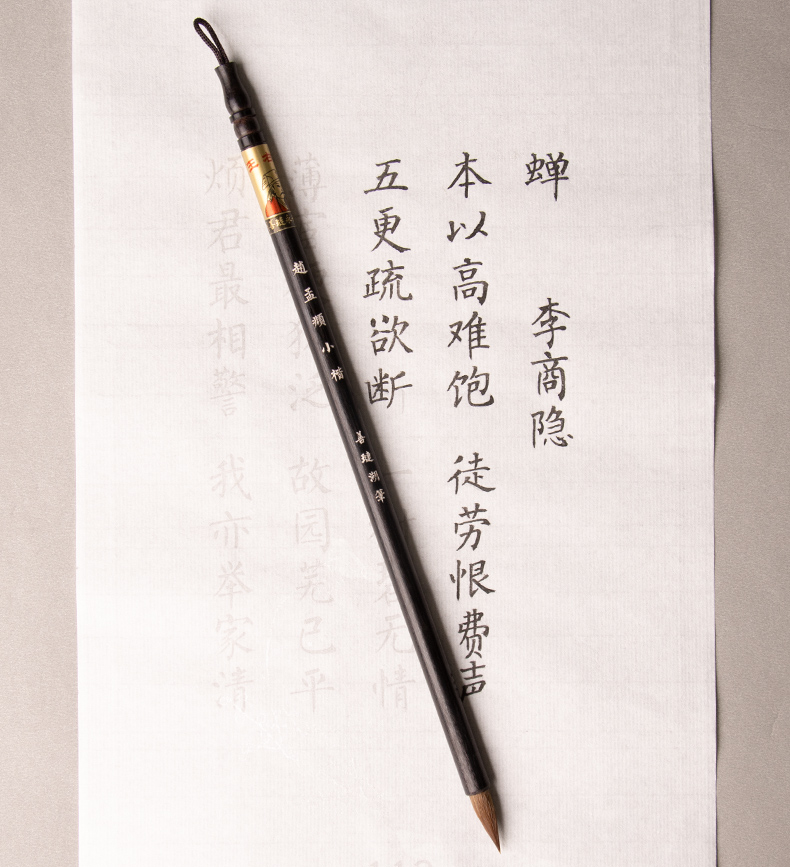 蝉 李商隐
本以高难饱 徒劳恨费声
五更疏欲断 一 无情
薄 泛 故园芜已平
烦君最相警 我亦举家清
趙孟頫小楷
善璉湖筆